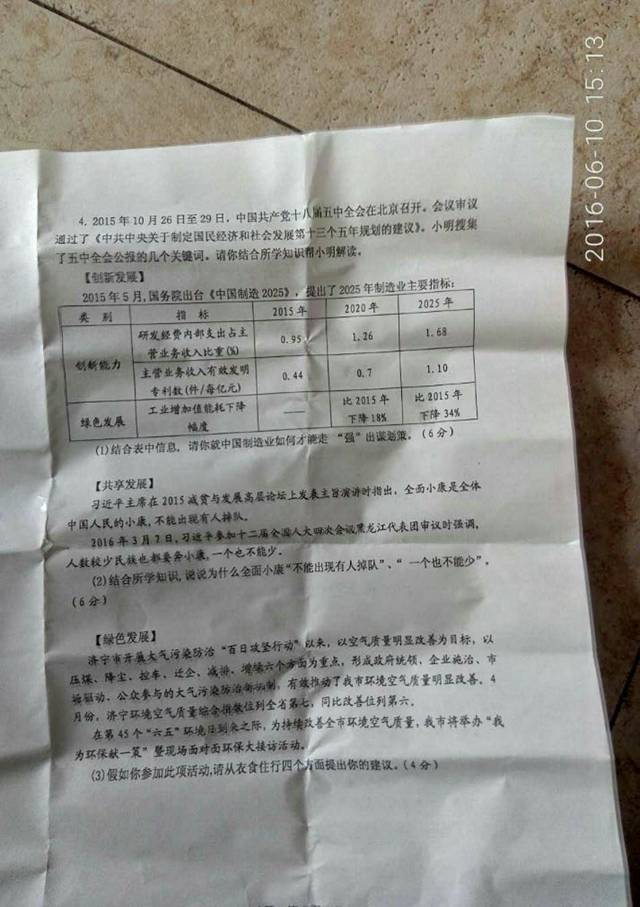 2016-06-10 15:13
4. 2015年10月26日至29日，中国共产党十八届五中全会在北京召开。会议审议
通过了《中共中央关于制定国民经济和社会发展第十三个五年规划的建议》。小明搜集
了五中全会公报的几个关键词。请你结合所学知识帮小明解读。
【创新发展】
2015年5月,国务院出台《中国制造2025》，提出了2025年制造业主要指标:
类 别 指 标 2015年 2020年 2025年
创新能力 研发经费内部支出占主营业务收入比重(%) 0.95 1.26 1.68
主营业务收入有效发明专利数(件/每亿元) 0.44 0.7 1.10
绿色发展 工业增加值能耗下降幅度 —— 比2015年下降18% 比2015年下降34%
(1)结合表中信息，请你就中国制造业如何才能走“强”出谋划策。(6分)
【共享发展】
习近平主席在2015减贫与发展高层论坛上发表主旨演讲时指出，全面小康是全体
中国人民的小康,不能出现有人掉队。
2016年3月7日,习近平参加十二届全国人大四次会议黑龙江代表团审议时强调，
人数较少民族也都要奔小康,一个也不能少。
(2)结合所学知识,说说为什么全面小康“不能出现有人掉队”、“一个也不能少”。
(6分)
【绿色发展】
济宁市开展大气污染防治“百日攻坚行动”以来，以空气质量明显改善为目标，以
压煤、降尘、控车、迁企、减排、增绿六个方面为重点，形成政府统领、企业施治、市
场驱动、公众参与的大气污染防治新机制，有效推动了我市环境空气质量明显改善。4
月份，济宁环境空气质量综合指数位列全省第七，同比改善位列第六。
在第45个“六五”环境日到来之际,为持续改善全市环境空气质量，我市将举办“我
为环保献一策”暨现场面对面环保大接访活动。
(3)假如你参加此项活动,请从衣食住行四个方面提出你的建议。(4分)